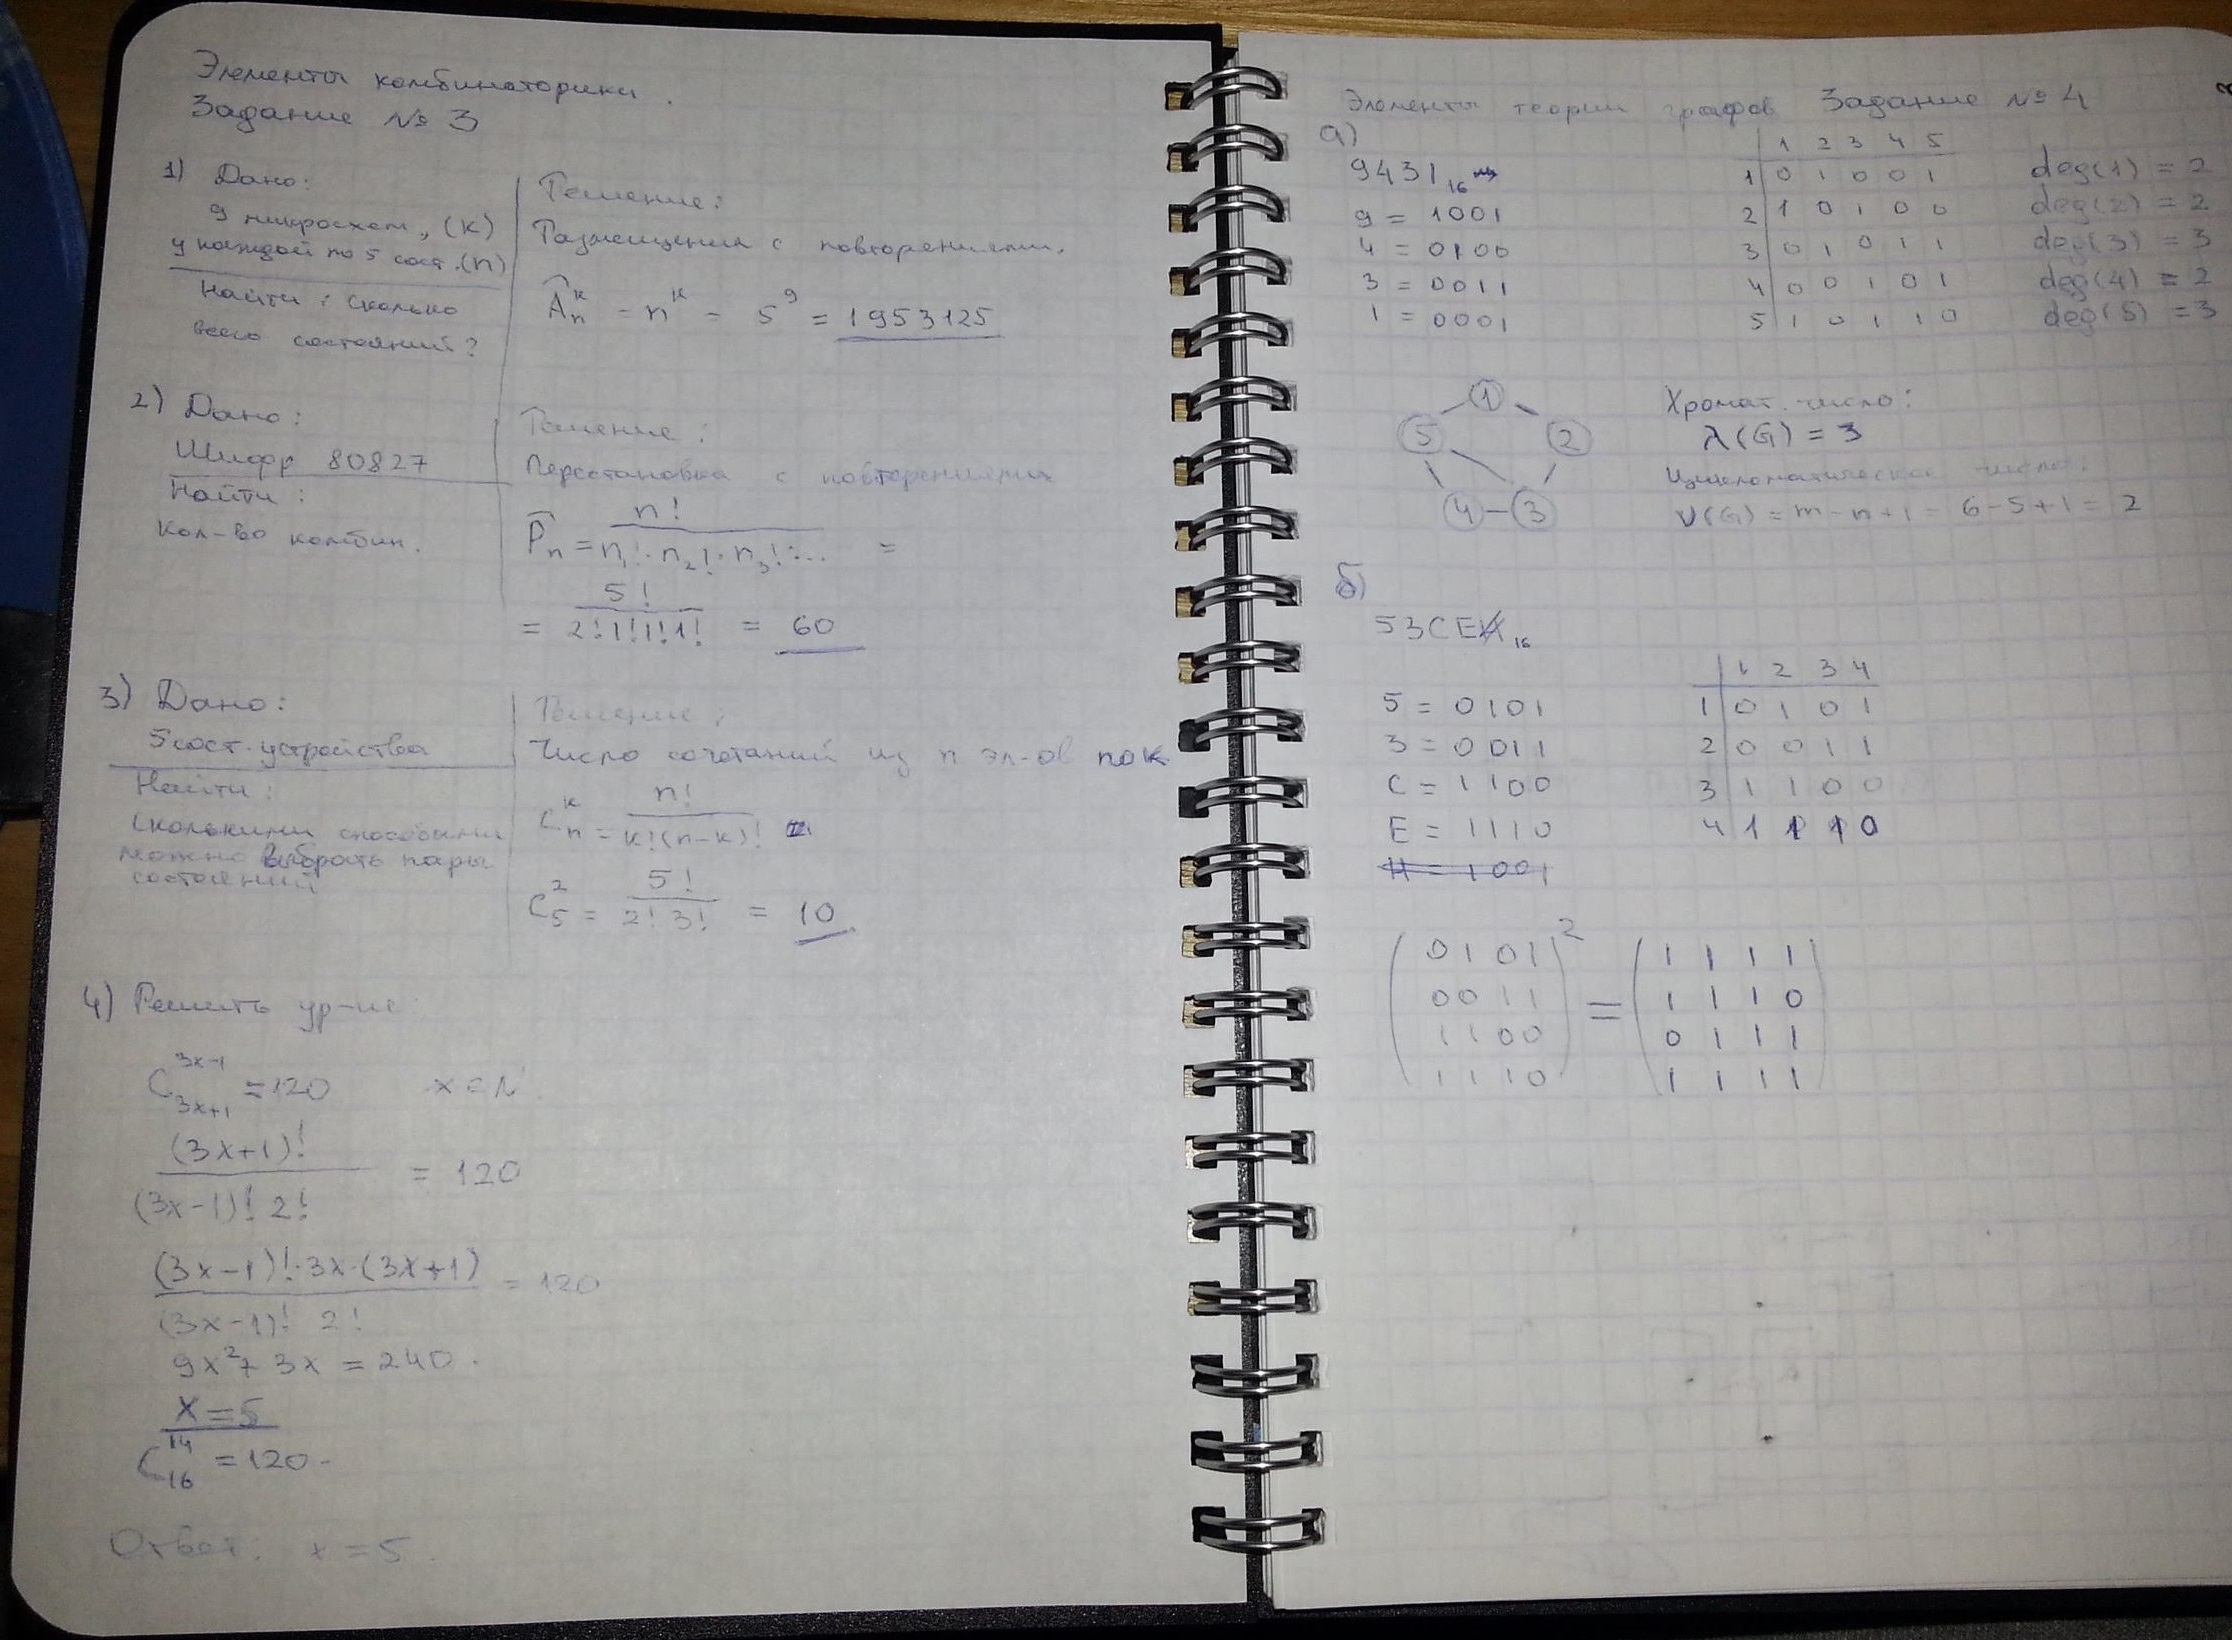 Элементы комбинаторики.
Задание № 3
1) Дано:
9 микросхем, (к)
у каждой по 5 сост.(n)
Найти: сколько
всего состояний?
Решение:
Размещения с повторениями.
Â_n^к = n^к = 5^9 = 1953125
2) Дано:
Шифр 80827
Найти:
Кол-во комбин.
Решение:
Перестановка с повторениями
P̂_n = n! / (n₁!·n₂!·n₃!·...) =
= 5! / (2!1!1!1!) = 60
3) Дано:
5 сост. устройства
Найти:
Сколькими способами
можно выбрать пары
состояний
Решение:
Число сочетаний из n эл-ов по к
C_n^к = n! / (к!(n-к)!)
C_5^2 = 5! / (2! 3!) = 10
4) Решить ур-ие:
C_{3x+1}^{3x-1} = 120 x∈N
(3x+1)! / ((3x-1)! 2!) = 120
(3x-1)!·3x·(3x+1) / ((3x-1)! 2!) = 120
9x²+3x = 240.
x=5
C_16^14 = 120
Ответ: x=5.
Элементы теории графов Задание № 4
а)
9431₁₆
9 = 1001
4 = 0100
3 = 0011
1 = 0001
1 2 3 4 5
1 0 1 0 0 1
2 1 0 1 0 0
3 0 1 0 1 1
4 0 0 1 0 1
5 1 0 1 1 0
deg(1) = 2
deg(2) = 2
deg(3) = 3
deg(4) = 2
deg(5) = 3
1
5 2
4 3
Хромат. число:
λ(G) = 3
Цикломатическое число:
ν(G) = m-n+1 = 6-5+1 = 2
б)
53CE₁₆
5 = 0101
3 = 0011
C = 1100
E = 1110
1 2 3 4
1 0 1 0 1
2 0 0 1 1
3 1 1 0 0
4 1 1 1 0
( 0 1 0 1 )² = ( 1 1 1 1 )
0 0 1 1 1 1 1 0
1 1 0 0 0 1 1 1
1 1 1 0 1 1 1 1